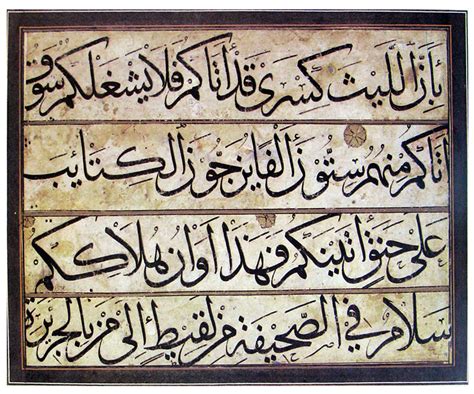 بأن الليث كسرى قد أتاكم فلا يشغلكم سوق
أتاكم منهم ستون ألفا يزجون الكتائب
على حنق أتينكم فهذا أوان هلاككم
سلام في الصحيفة من لقيط إلى من بالجزيرة